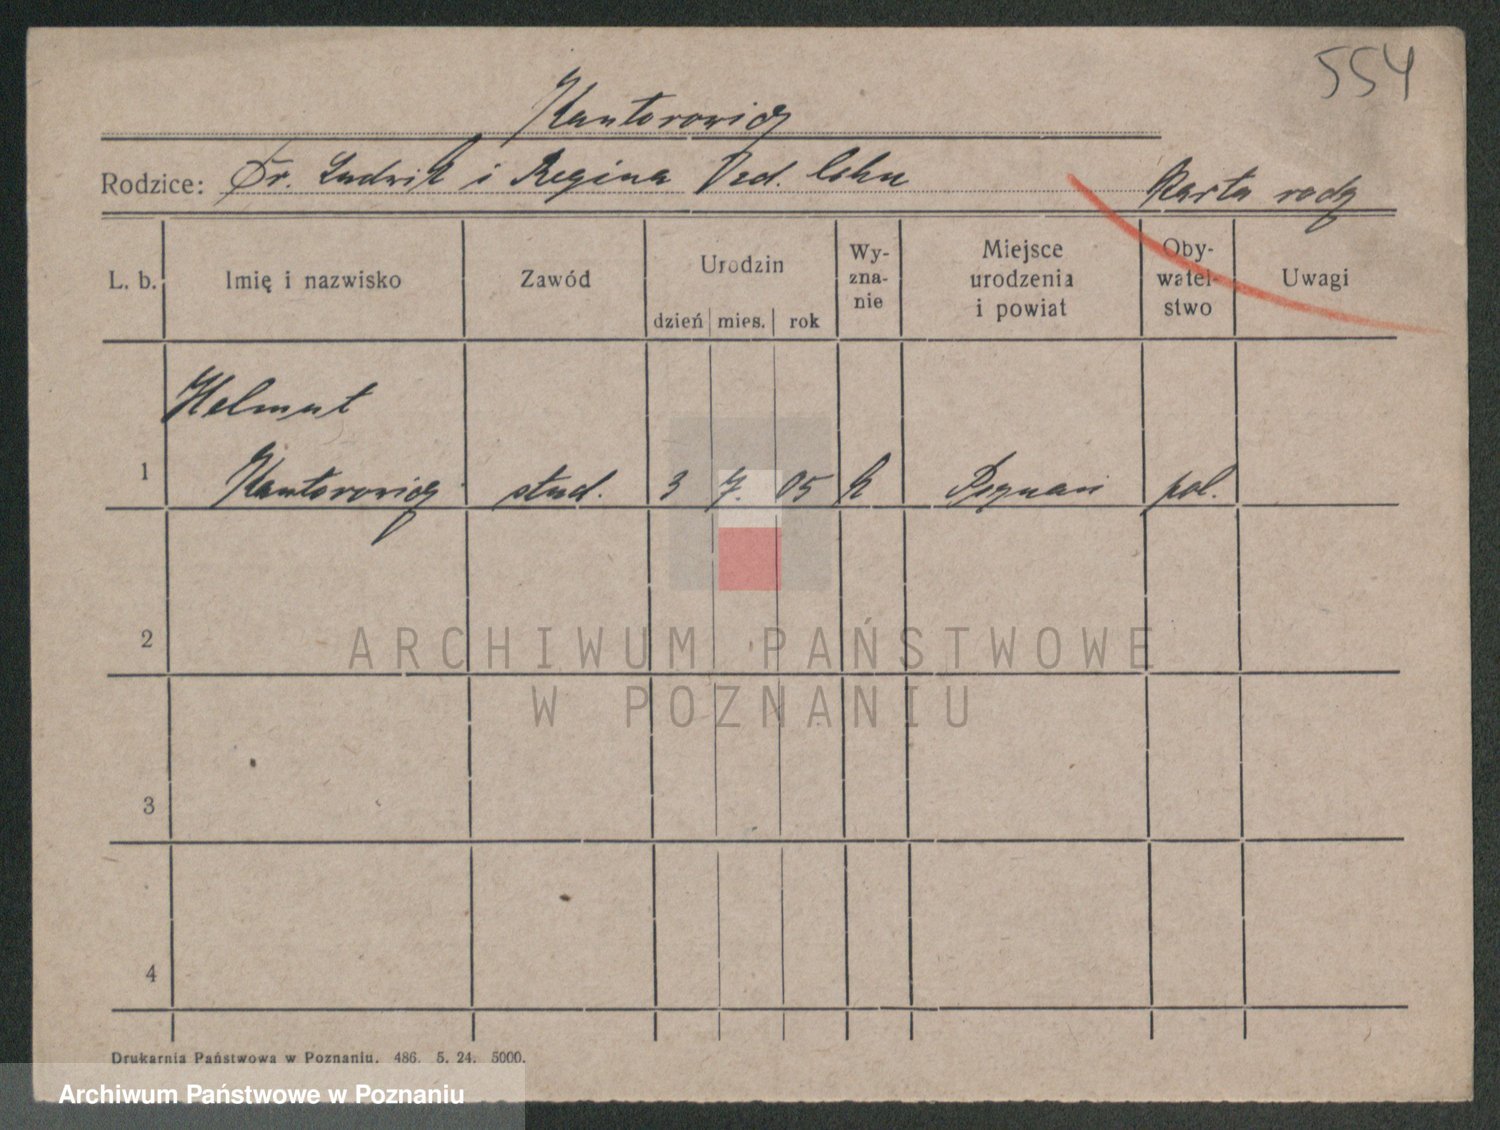 554
Kantorowicz
Rodzice: Dr. Ludwik i Regina Karta rodz
L. b. Imię i nazwisko Zawód Urodzin Wy-zna-nie Miejsce urodzenia i powiat Oby-watel-stwo Uwagi
dzień mies. rok
Helmut
1 Kantorowicz stud. 3 7. 05 Poznań pol.
2
ARCHIWUM PAŃSTWOWE
W POZNANIU
3
4
Drukarnia Państwowa w Poznaniu. 486. 5. 24. 5000.
Archiwum Państwowe w Poznaniu